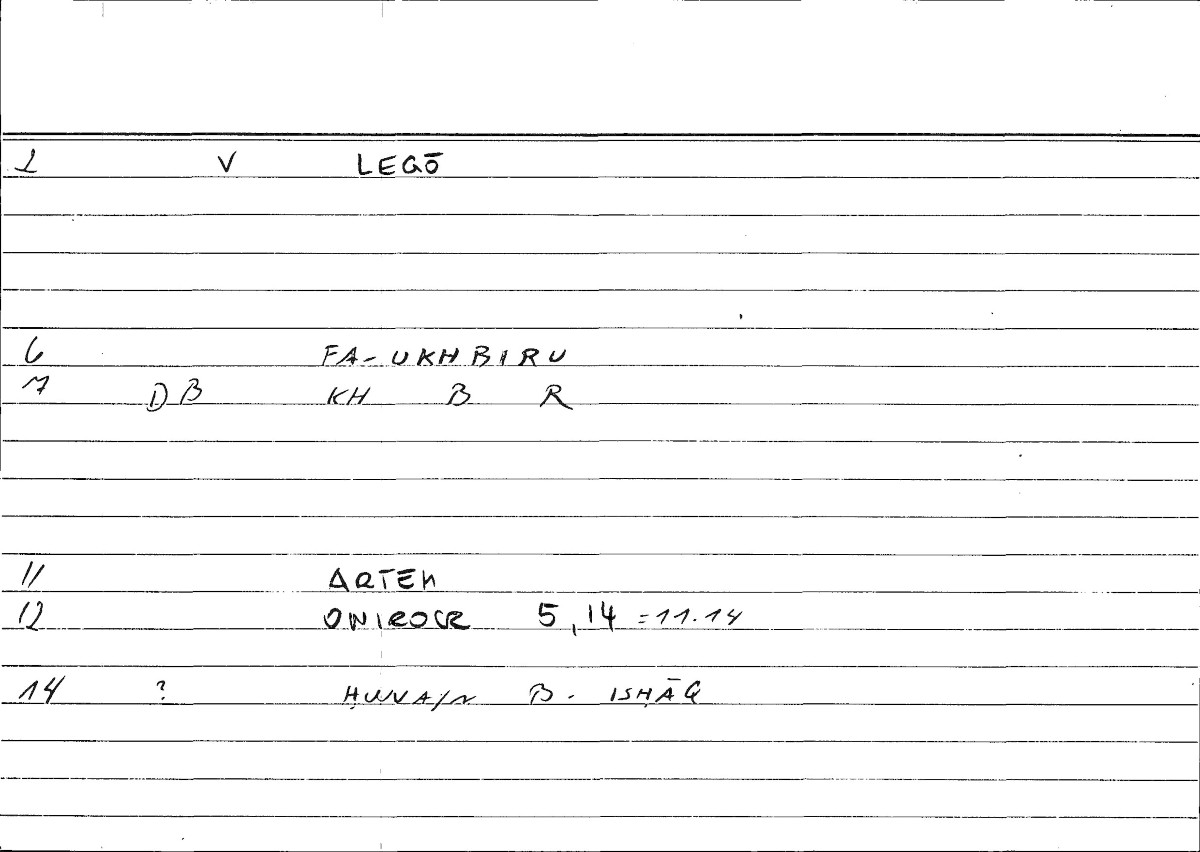 1 V LEGŌ
6 FA-UKHBIRU
7 DB KH B R
11 ARTEM
12 ONIROCR 5,14 =11.14
14 ? ḤUNAIN B. ISḤĀQ